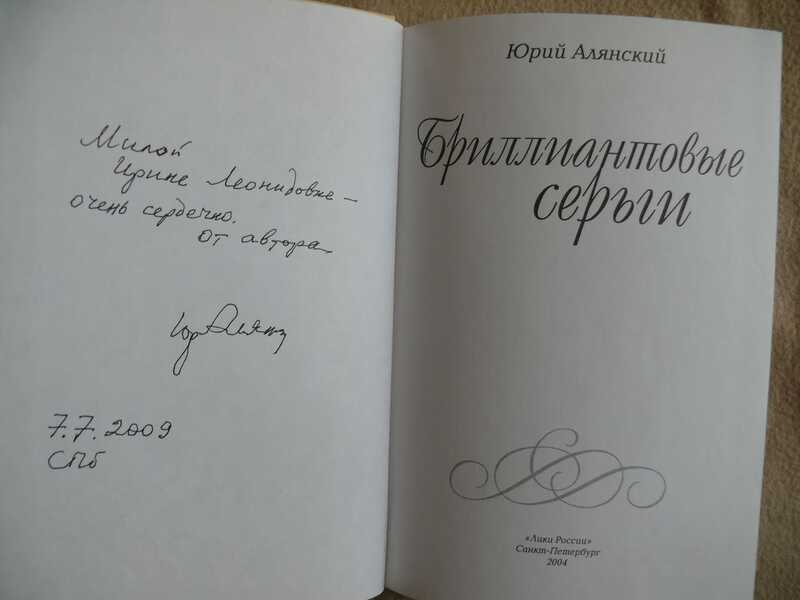 Милой
Ирине Леонидовне –
очень сердечно.
От автора
ЮрАлянс
7.7.2009
СПб
Юрий Алянский
Бриллиантовые
серьги
«Лики России»
Санкт-Петербург
2004